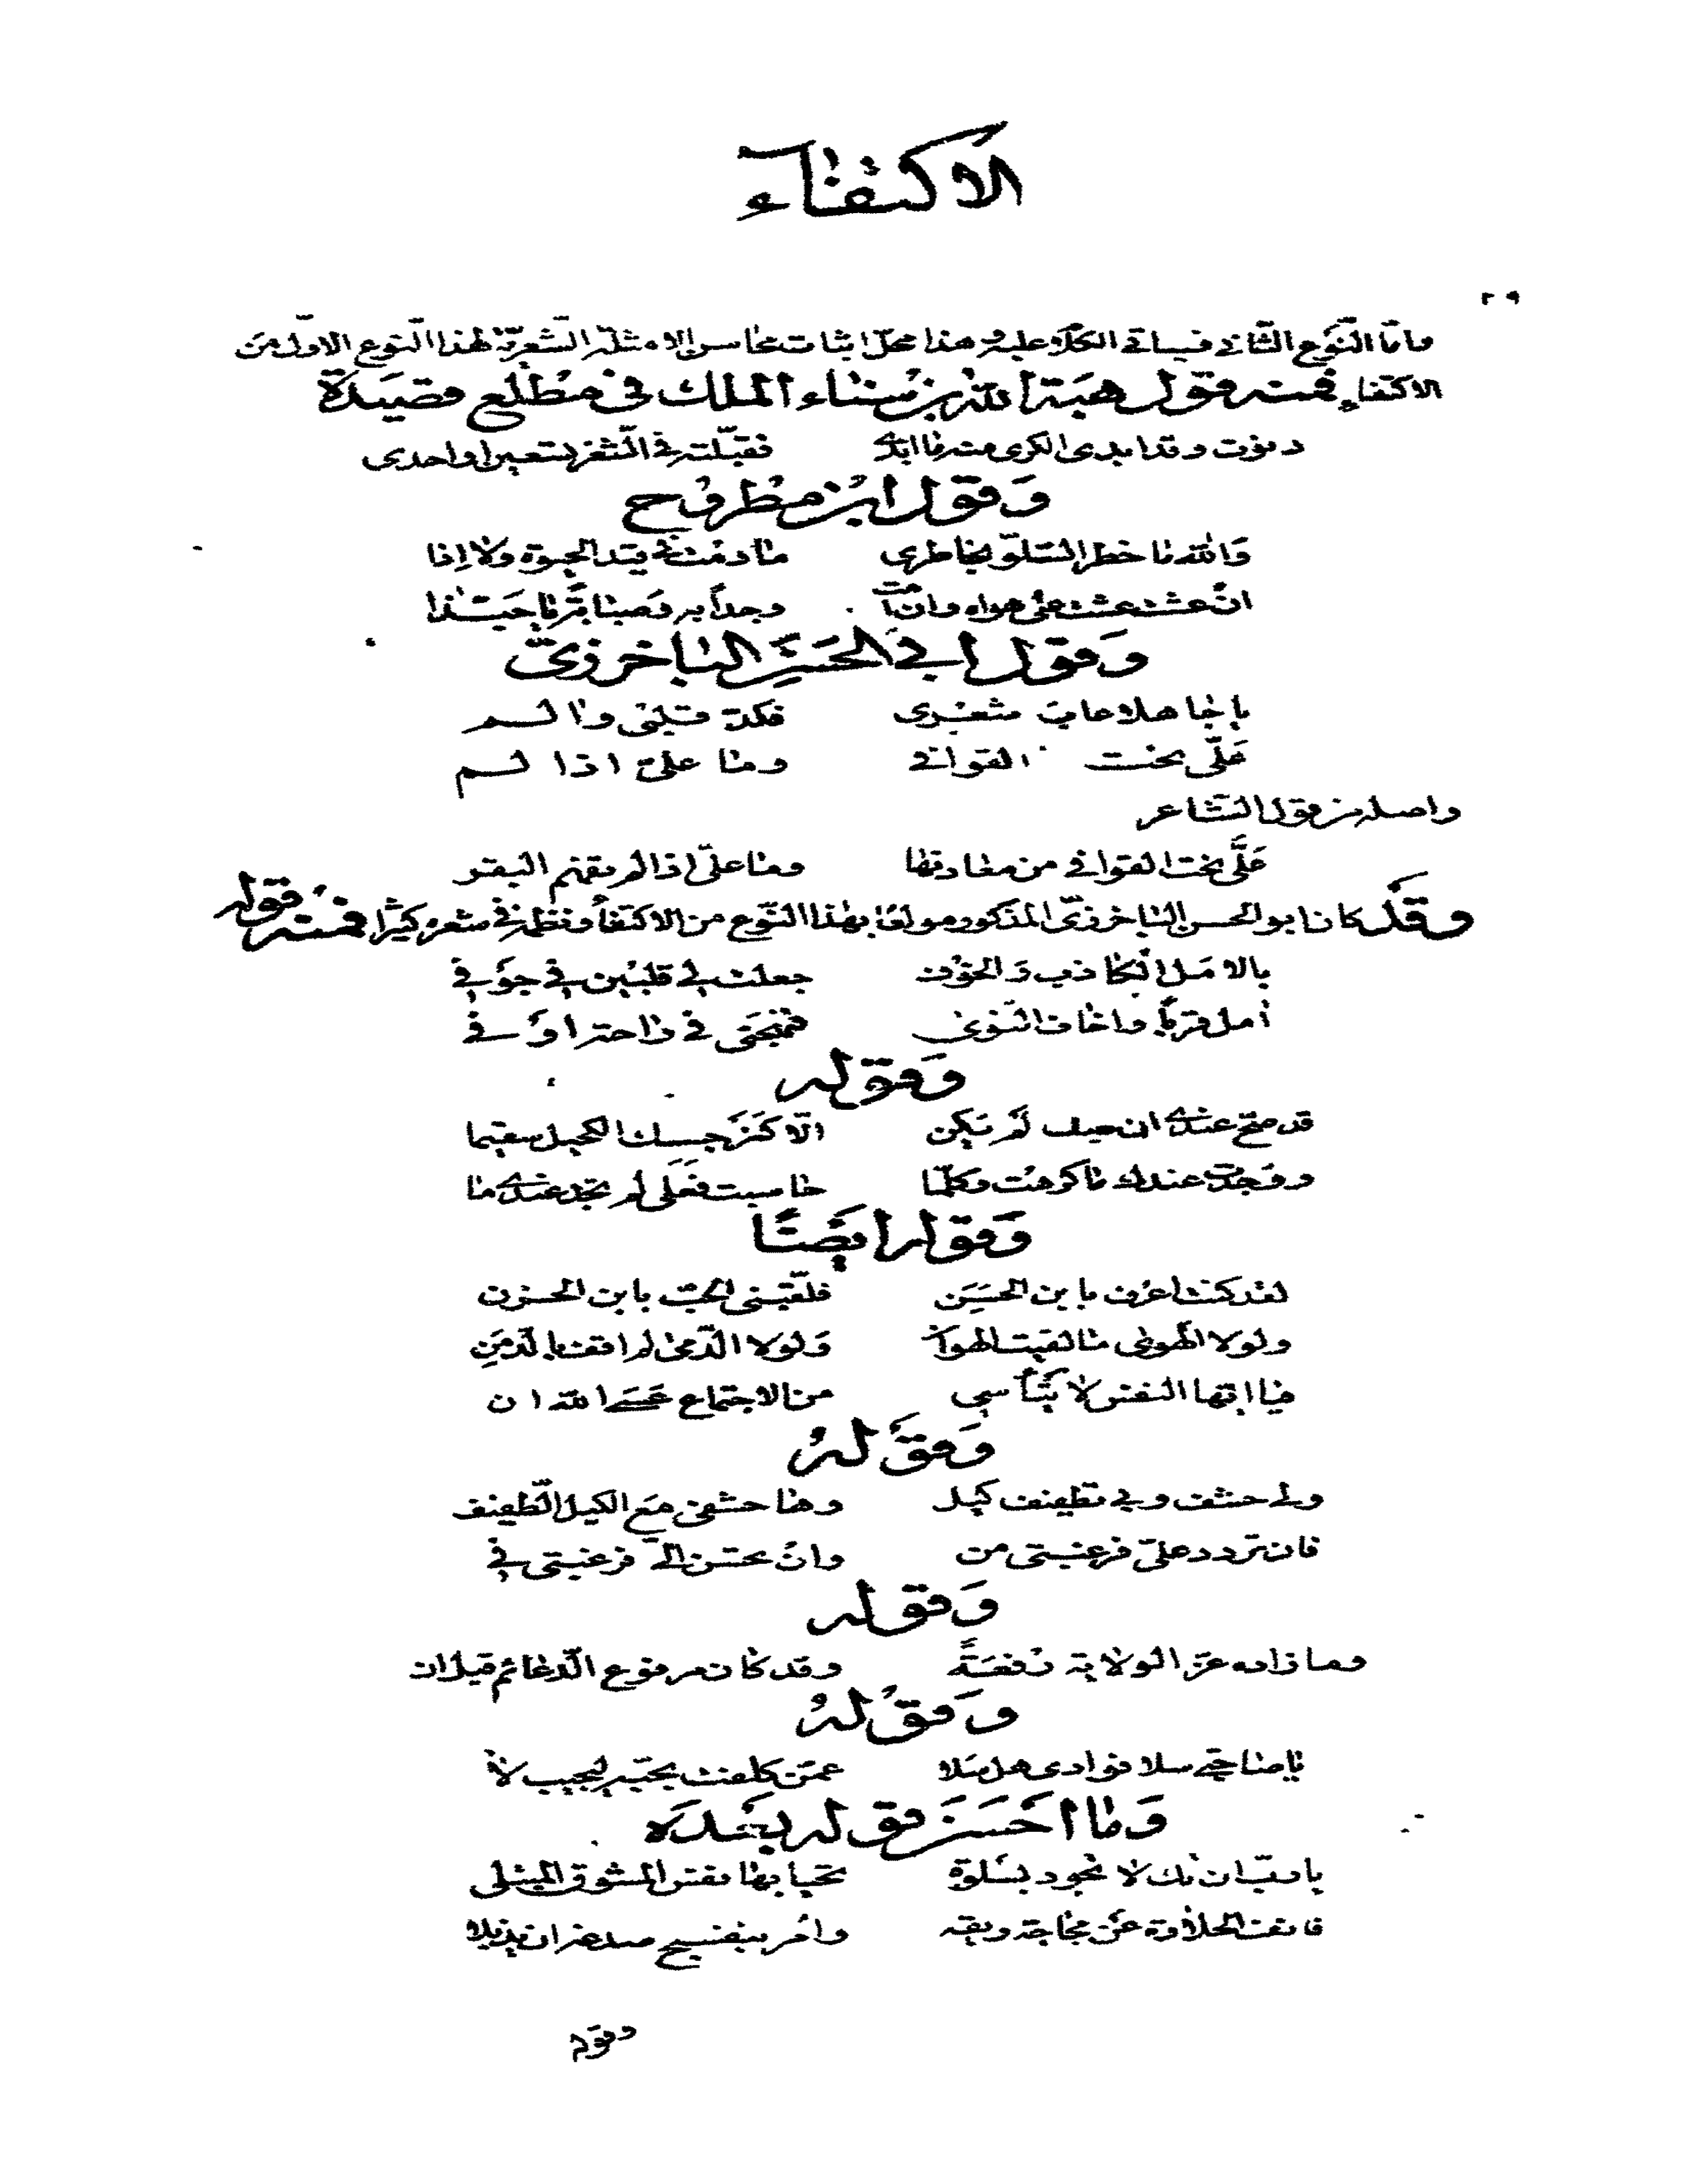 الاكتفاء
٢٩
وامّا النّوع الثّاني فسياتي الكلام عليه وهذا محلّ اثبات محاسن الامثلة الشّعريّة لهذا النّوع الاوّل من
الاكتفاء فمنه قول هبة الله بن سناء الملك في مطلع قصيدة
دنوت وقد ابدى الكرى منه ما ابدى فقبّلته في الثّغر تسعين او احدى
وقول ابن مطروح
والله ما خطر السّلوّ بخاطرى ما دمت في قيد الحيوة ولا اذا
ان عشت عشت على هواه وان امت وجداً به وصبابةً يا حبّذا
وقول ابي الحسن الباخرزيّ
يا جاهلا عاب شعرى فكدّ قلبى والم
علّى نحت القوافي وما علىّ اذا لم
واصله من قول الشّاعر
علَّى نحت القوافي من معادنها وما علىّ اذا لم تفهم البقر
وقد كان ابو الحسن الباخرزىّ المذكور مولعًا بهذا النّوع من الاكتفاء ونظمه في شعره كثيرًا فمنه قوله
بالامل الكاذب والخوف جعلت لي قلبين في جوفي
امل قربًا واخاف النّوى فمهجتى في ذا احتراق وفي
وقوله
قد صحّ عندي ان حبك لم يكن الّا كنرجسك الكحيل سقيما
ووجدت عندك ما كرهت وكلّما حاسبت فعلى لم تجد عندي ما
وقوله ايضًا
لقد كنت اعرف بابن الحسن فلقّبنى الحبّ بابن الحزن
ولولا الهوى ما لقيت الهوان ولولا الدّمى لم اقف بالدّمن
فيا ايّها النفس لا تيأسي من الاجتماع عسى الله ان
وقوله
ولي حشف وبي تطفيف كيل وها حشفى مع الكيل الطّفيف
فان تردد علىّ فرغبتى من وان تحسن اليّ فرغبتى في
وقوله
وما زاده عزّ الولاية رفعةً وقد كان مرفوع الدّعائم قبل ان
وقوله
يا صاحبي سلا فؤادى هل سلا عمّن كلفت بحبّه ليجيب لا
وما احسن قوله بعده
يا ربّ ان تك لا تجود بسلوة تحيا بها نفس المشوق المبتلى
فانف الحلاوة عن مجاجة ريقه وأمر بنفسج صدغه ان يذبلا
وقوله